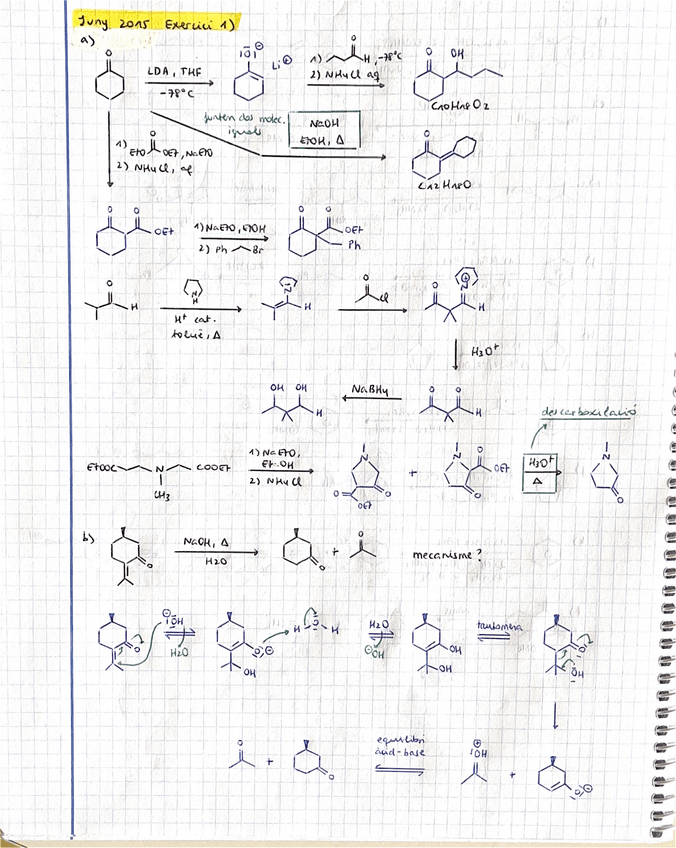 Juny 2015 Exercici 1)
a)
O
LDA, THF
-78°C
|O|⊖
Li⊕
1) O H, -78°C
2) NH4Cl aq
O OH
C10H18O2
junten dos molec.
iguals
NaOH
EtOH, Δ
O
C12H18O
1) EtO O OEt, NaEtO
2) NH4Cl, aq
O O OEt
1) NaEtO, EtOH
2) Ph Br
O O OEt
Ph
O H
N H
H+ cat.
toluè, Δ
N H
O Cl
O N⊕ H
H3O+
OH OH H
NaBH4
O O H
descarboxilació
EtOOC N COOEt
CH3
1) NaEtO,
EtOH
2) NH4Cl
N O O OEt
+
N O OEt O
H3O+
Δ
N O
b)
O
NaOH, Δ
H2O
O + O
mecanisme?
O
⊖|OH
H2O
O⊖
OH
H O H
H2O
⊖OH
OH
OH
tautomeria
O
OH
O + O
equilibri
àcid-base
⊕OH
+ O⊖